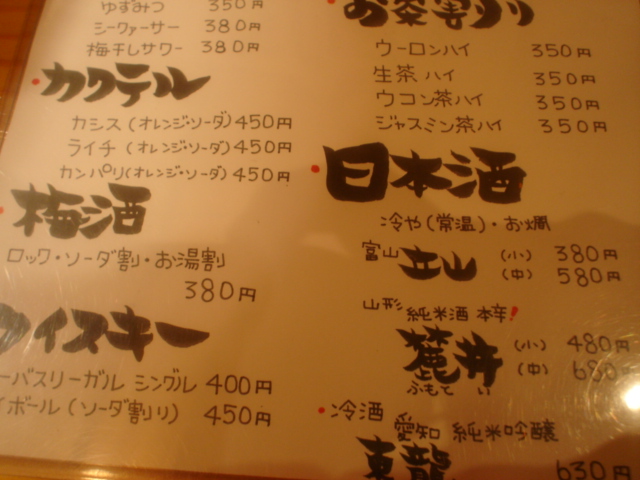 ゆずみつ 350円
シークァーサー 380円
梅干しサワー 380円
カクテル
カシス(オレンジ・ソーダ) 450円
ライチ(オレンジ・ソーダ) 450円
カンパリ(オレンジ・ソーダ) 450円
梅酒
ロック・ソーダ割・お湯割
380円
ウイスキー
ーバスリーガル シングル 400円
イボール(ソーダ割り) 450円
お茶割り
ウーロンハイ 350円
生茶ハイ 350円
ウコン茶ハイ 350円
ジャスミン茶ハイ 350円
日本酒
冷や(常温)・お燗
富山 立山 (小) 380円
(中) 580円
山形 純米酒 本辛!
麓井 (小) 480円
ふもとい (中) 680円
冷酒
愛知 純米吟醸
東龍 630円